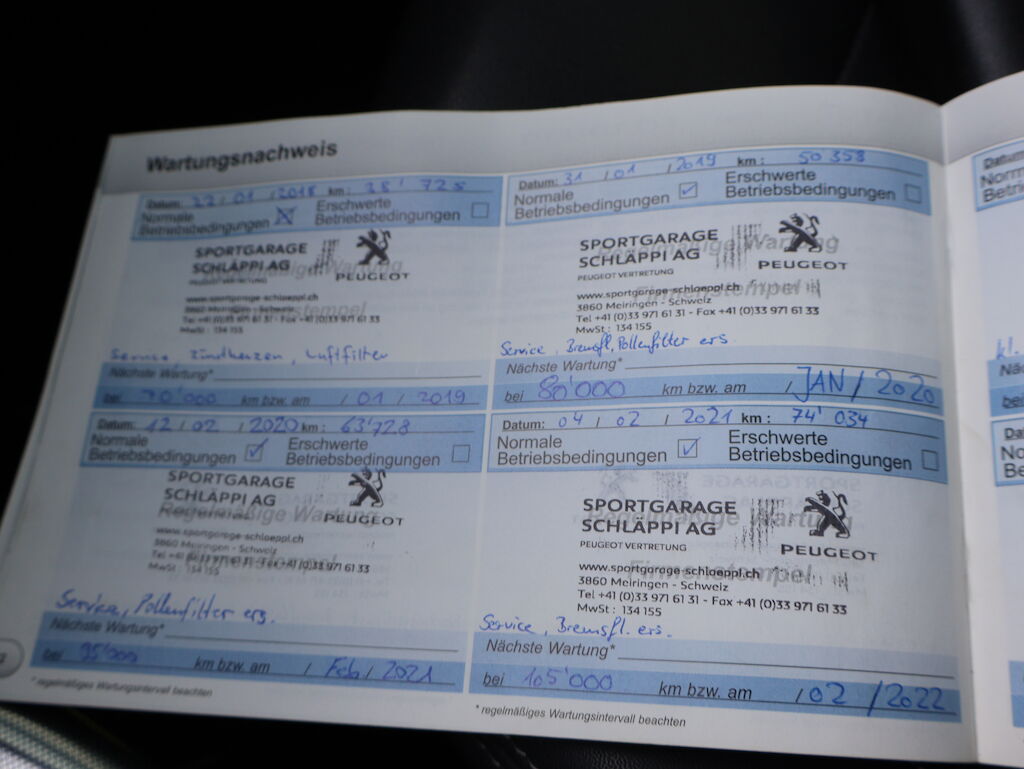 Wartungsnachweis
Datum: 22 / 01 / 2018 km : 38' 728
Normale Betriebsbedingungen Erschwerte Betriebsbedingungen
SPORTGARAGE
SCHLÄPPI AG
PEUGEOT VERTRETUNG
PEUGEOT
Regelmäßige Wartung
www.sportgarage-schlaeppi.ch
3860 Meiringen - Schweiz
Tel +41 (0)33 971 61 31 - Fax +41 (0)33 971 61 33
MwSt : 134 155
Service, Zündkerzen, Luftfilter
Nächste Wartung*
bei 70'000 km bzw. am / 01 / 2019
Datum: 31 / 01 / 2019 km : 50 358
Normale Betriebsbedingungen Erschwerte Betriebsbedingungen
SPORTGARAGE
SCHLÄPPI AG
PEUGEOT VERTRETUNG
PEUGEOT
Regelmäßige Wartung
Firmenstempel
www.sportgarage-schlaeppi.ch
3860 Meiringen - Schweiz
Tel +41 (0)33 971 61 31 - Fax +41 (0)33 971 61 33
MwSt : 134 155
Service, Bremsfl, Pollenfilter ers.
Nächste Wartung*
bei 80'000 km bzw. am / JAN / 2020
Datum: 12 / 02 / 2020 km : 63'728
Normale Betriebsbedingungen Erschwerte Betriebsbedingungen
SPORTGARAGE
SCHLÄPPI AG
PEUGEOT
Regelmäßige Wartung
www.sportgarage-schlaeppi.ch
3860 Meiringen - Schweiz
Tel +41 (0)33 971 61 31 - Fax +41 (0)33 971 61 33
MwSt : 134 155
Firmenstempel
Service, Pollenfilter ers.
Nächste Wartung*
bei 95'000 km bzw. am / Feb / 2021
* regelmäßiges Wartungsintervall beachten
Datum: 04 / 02 / 2021 km : 74' 034
Normale Betriebsbedingungen Erschwerte Betriebsbedingungen
SPORTGARAGE
SCHLÄPPI AG
PEUGEOT VERTRETUNG
PEUGEOT
Regelmäßige Wartung
Firmenstempel
www.sportgarage-schlaeppi.ch
3860 Meiringen - Schweiz
Tel +41 (0)33 971 61 31 - Fax +41 (0)33 971 61 33
MwSt : 134 155
Service, Bremsfl. ers.
Nächste Wartung*
bei 105'000 km bzw. am / 02 / 2022
* regelmäßiges Wartungsintervall beachten